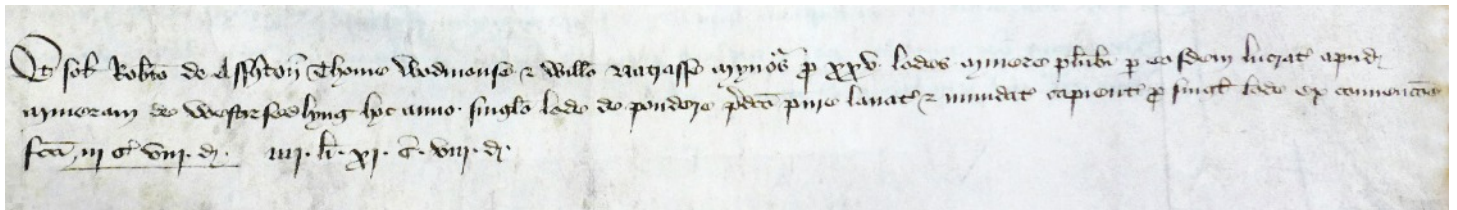 Et sol Robto de Asshton Thome Wodmouse & Willo mynos p xxv lodes minere plubi p eosdem lucrat apud
mineram de hoc anno singlo lode de pondere pdco pure lavat & mundat capient p singl lode ex convencoe
fca iij s viij d iiij li xj s viij d